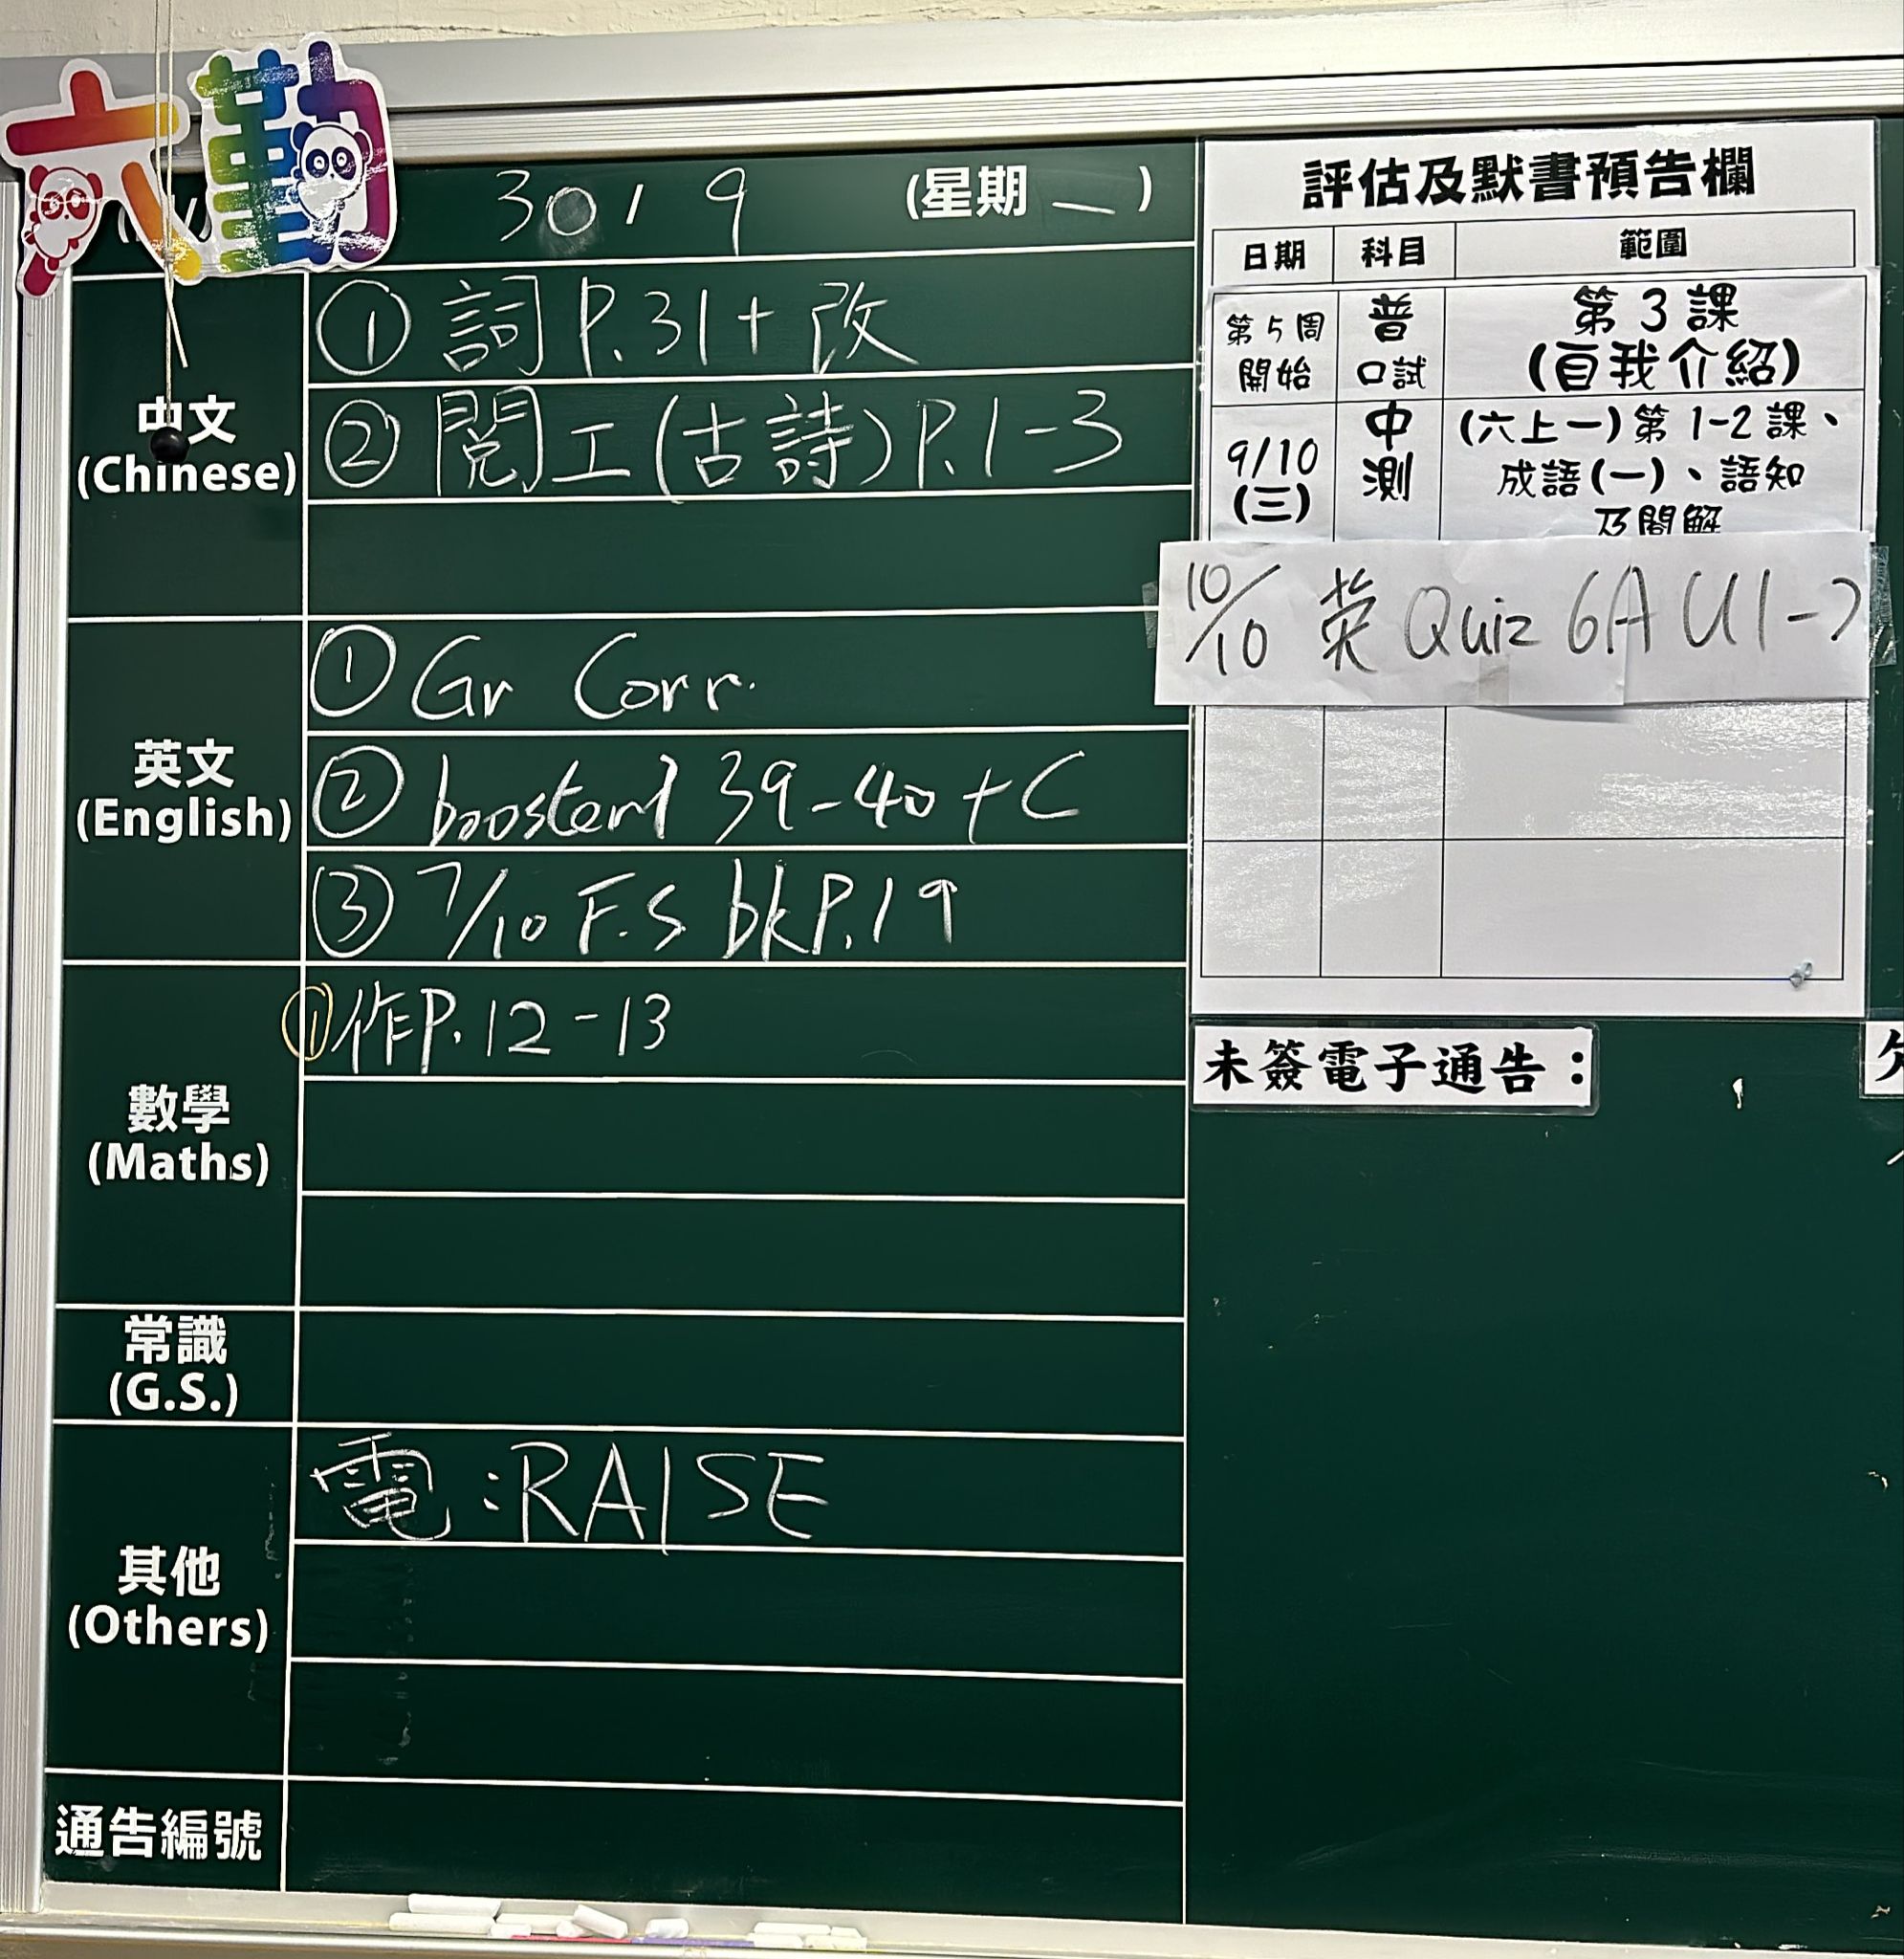 六勤
30 / 9 (星期一)
中文
(Chinese)
① 詞 P.31 + 改
② 閱工(古詩) P.1-3
英文
(English)
① Gr Corr.
② booster1 39-40 + C
③ 7/10 F.S bk P.19
數學
(Maths)
① 作 P.12-13
常識
(G.S.)
其他
(Others)
電:RAISE
通告編號
評估及默書預告欄
日期 科目 範圍
第5周開始 普口試 第3課(自我介紹)
9/10(三) 中測 (六上一)第1-2課、
成語(一)、語知
及閱解
10/10 英 Quiz 6A U1-
未簽電子通告: